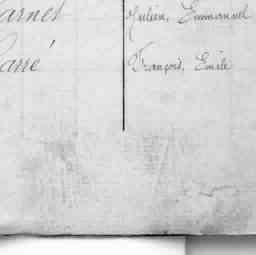 arnet Julien, Emmanuel
arré François, Emile